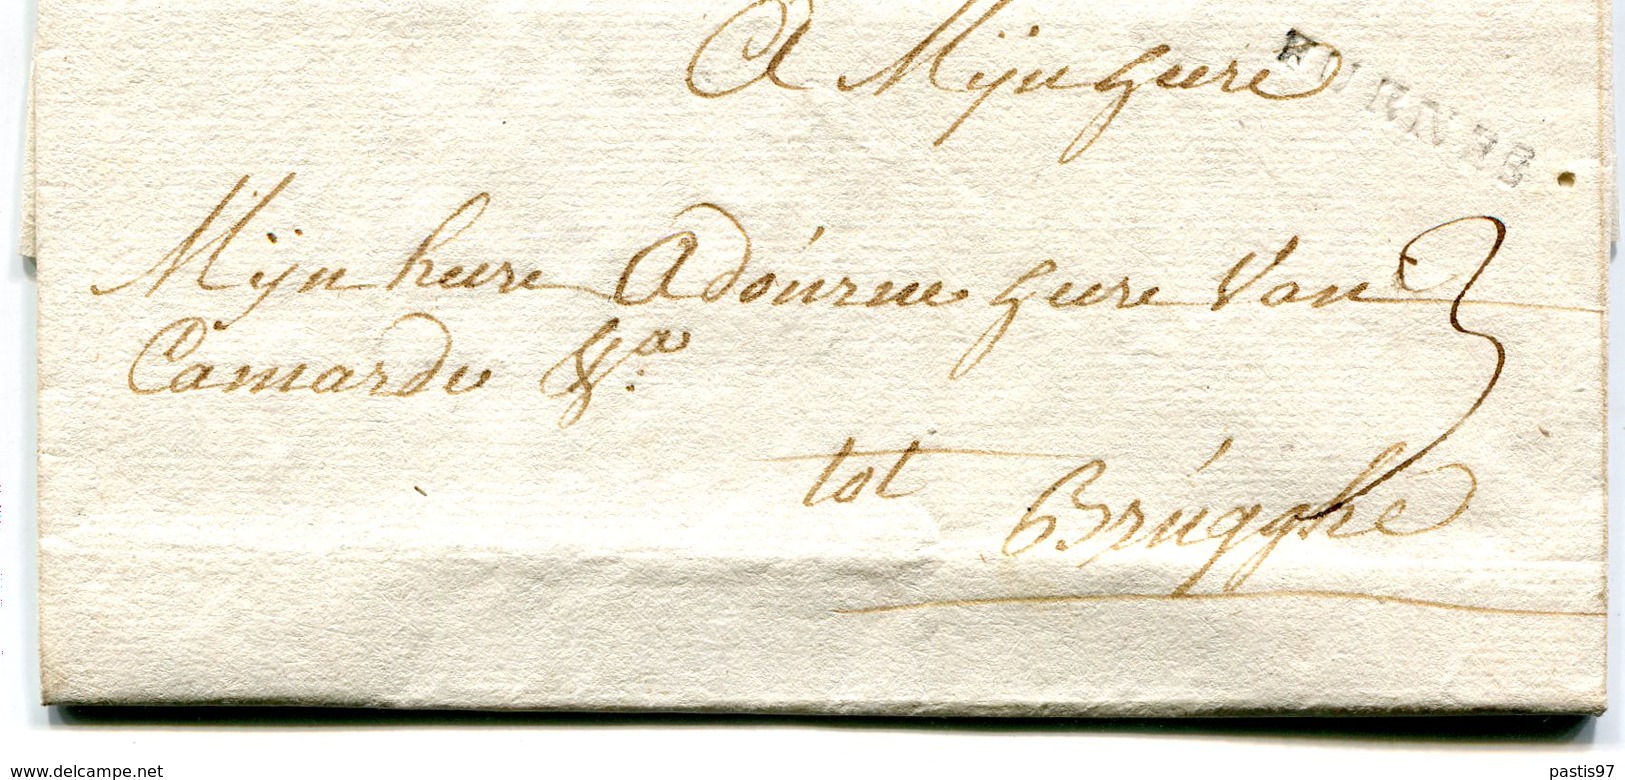 A Mijn heere
FURNES
Mijn heere Adóurne heere Van
Camarde &a
tot
Brúgghe
www.delcampe.net
pastis97